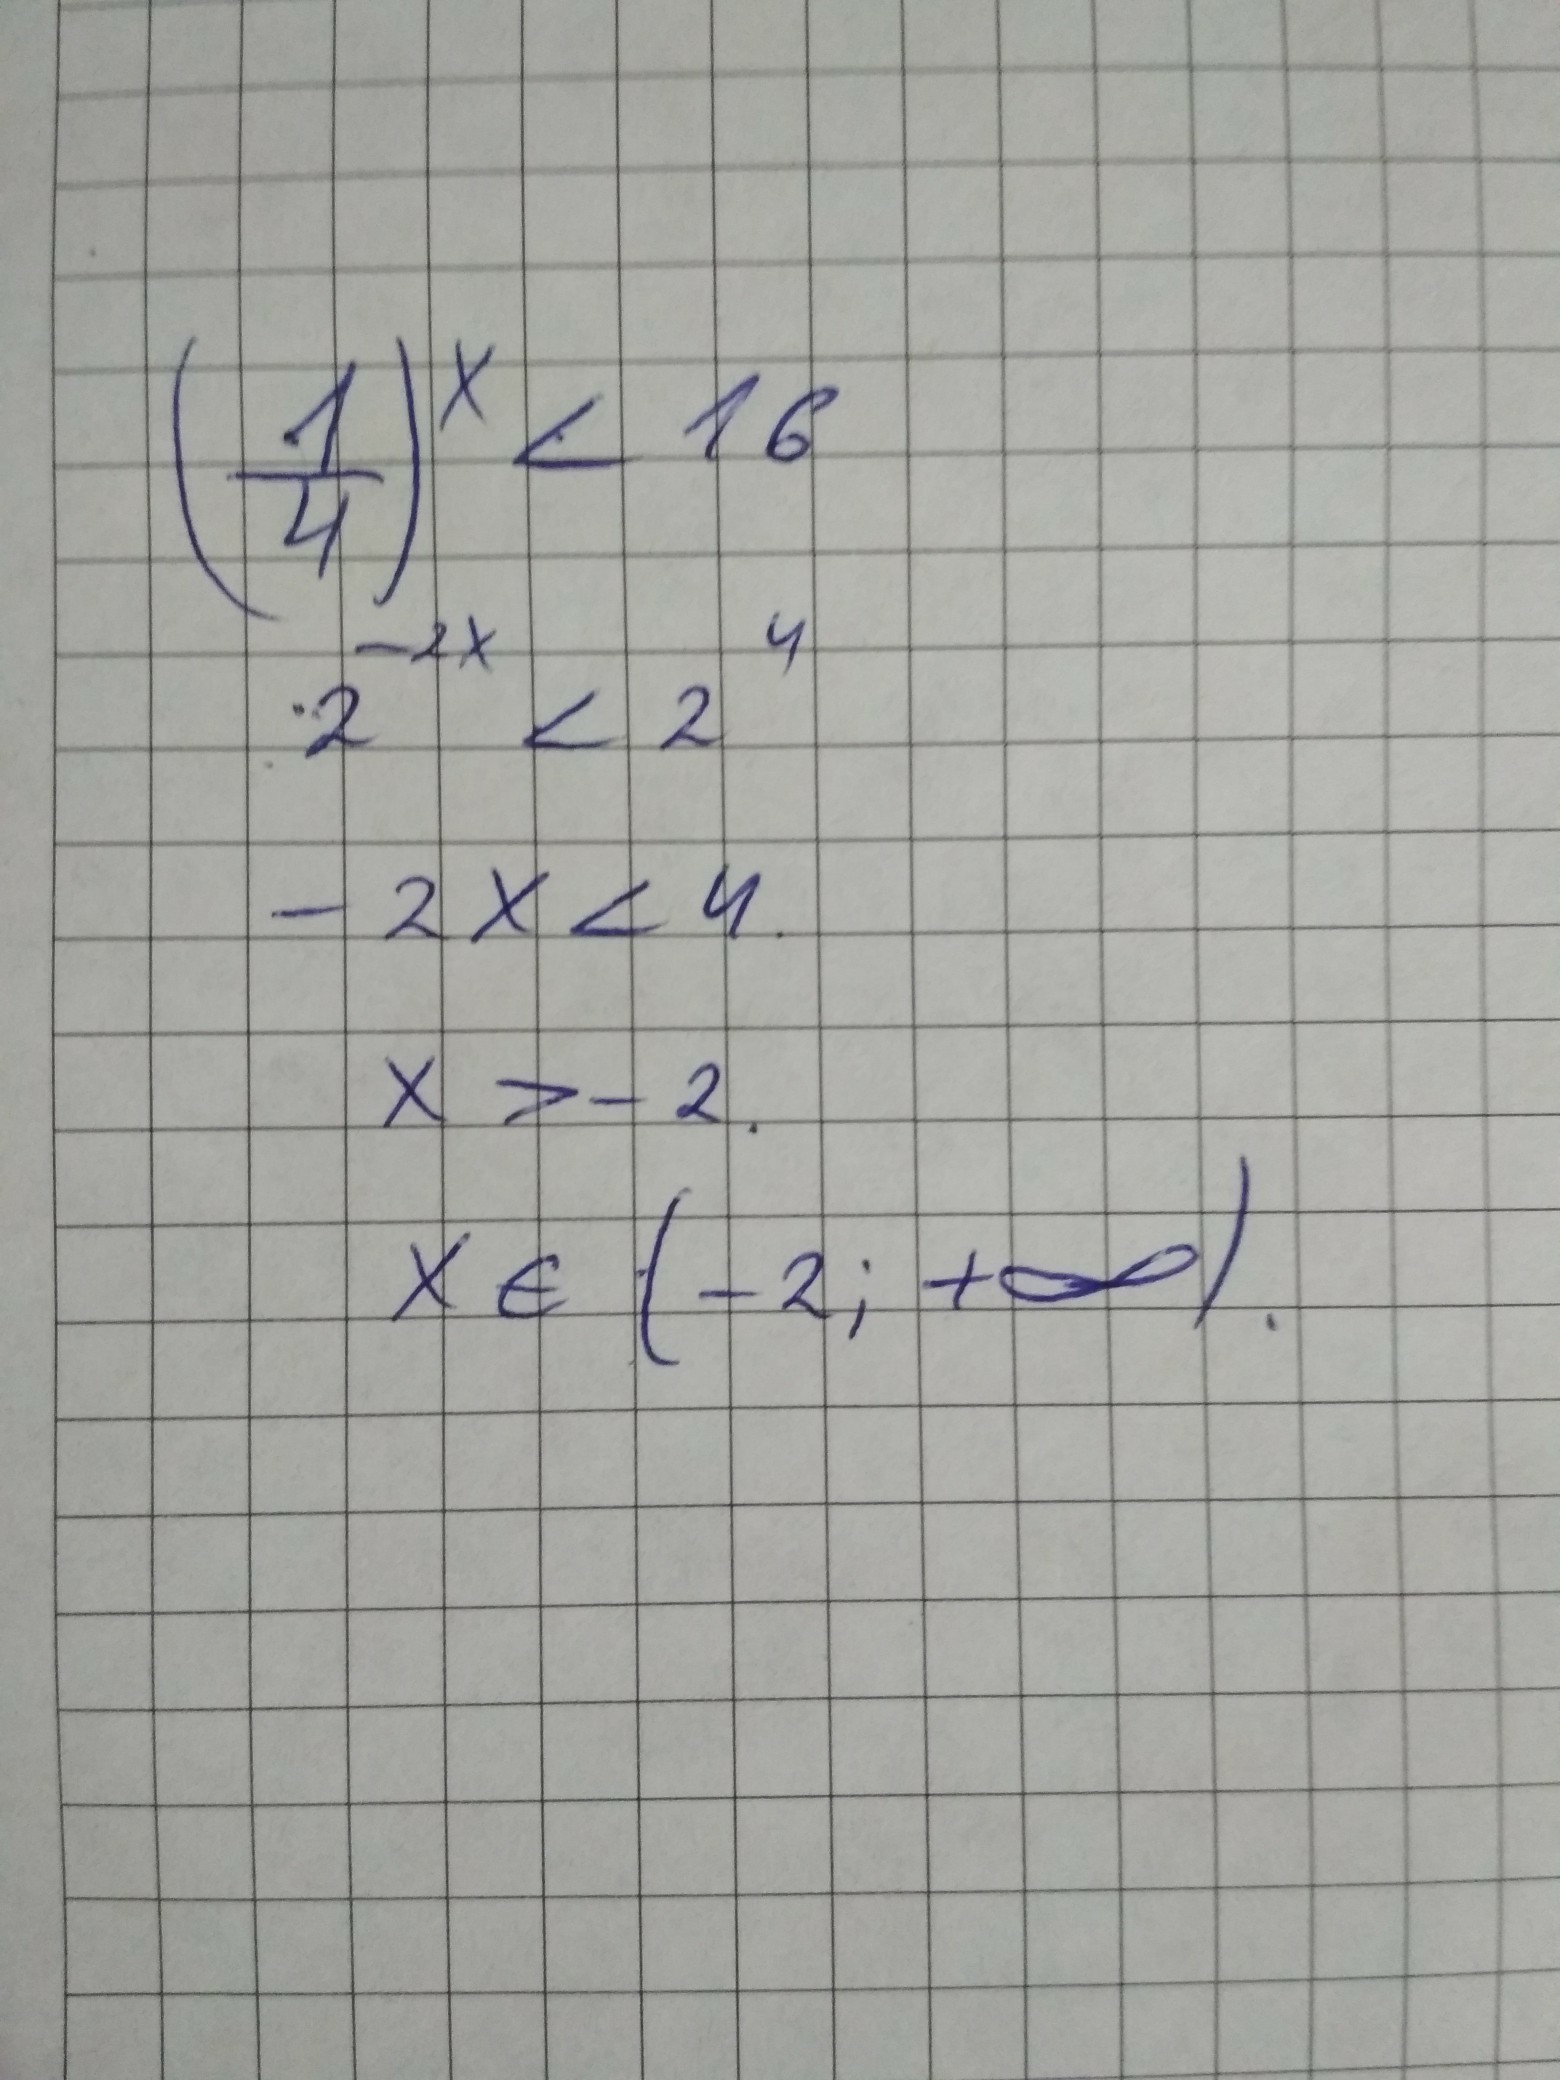 (1/4)^x < 16
2^-2x < 2^4
-2x < 4.
x > -2.
x ∈ (-2; +∞).